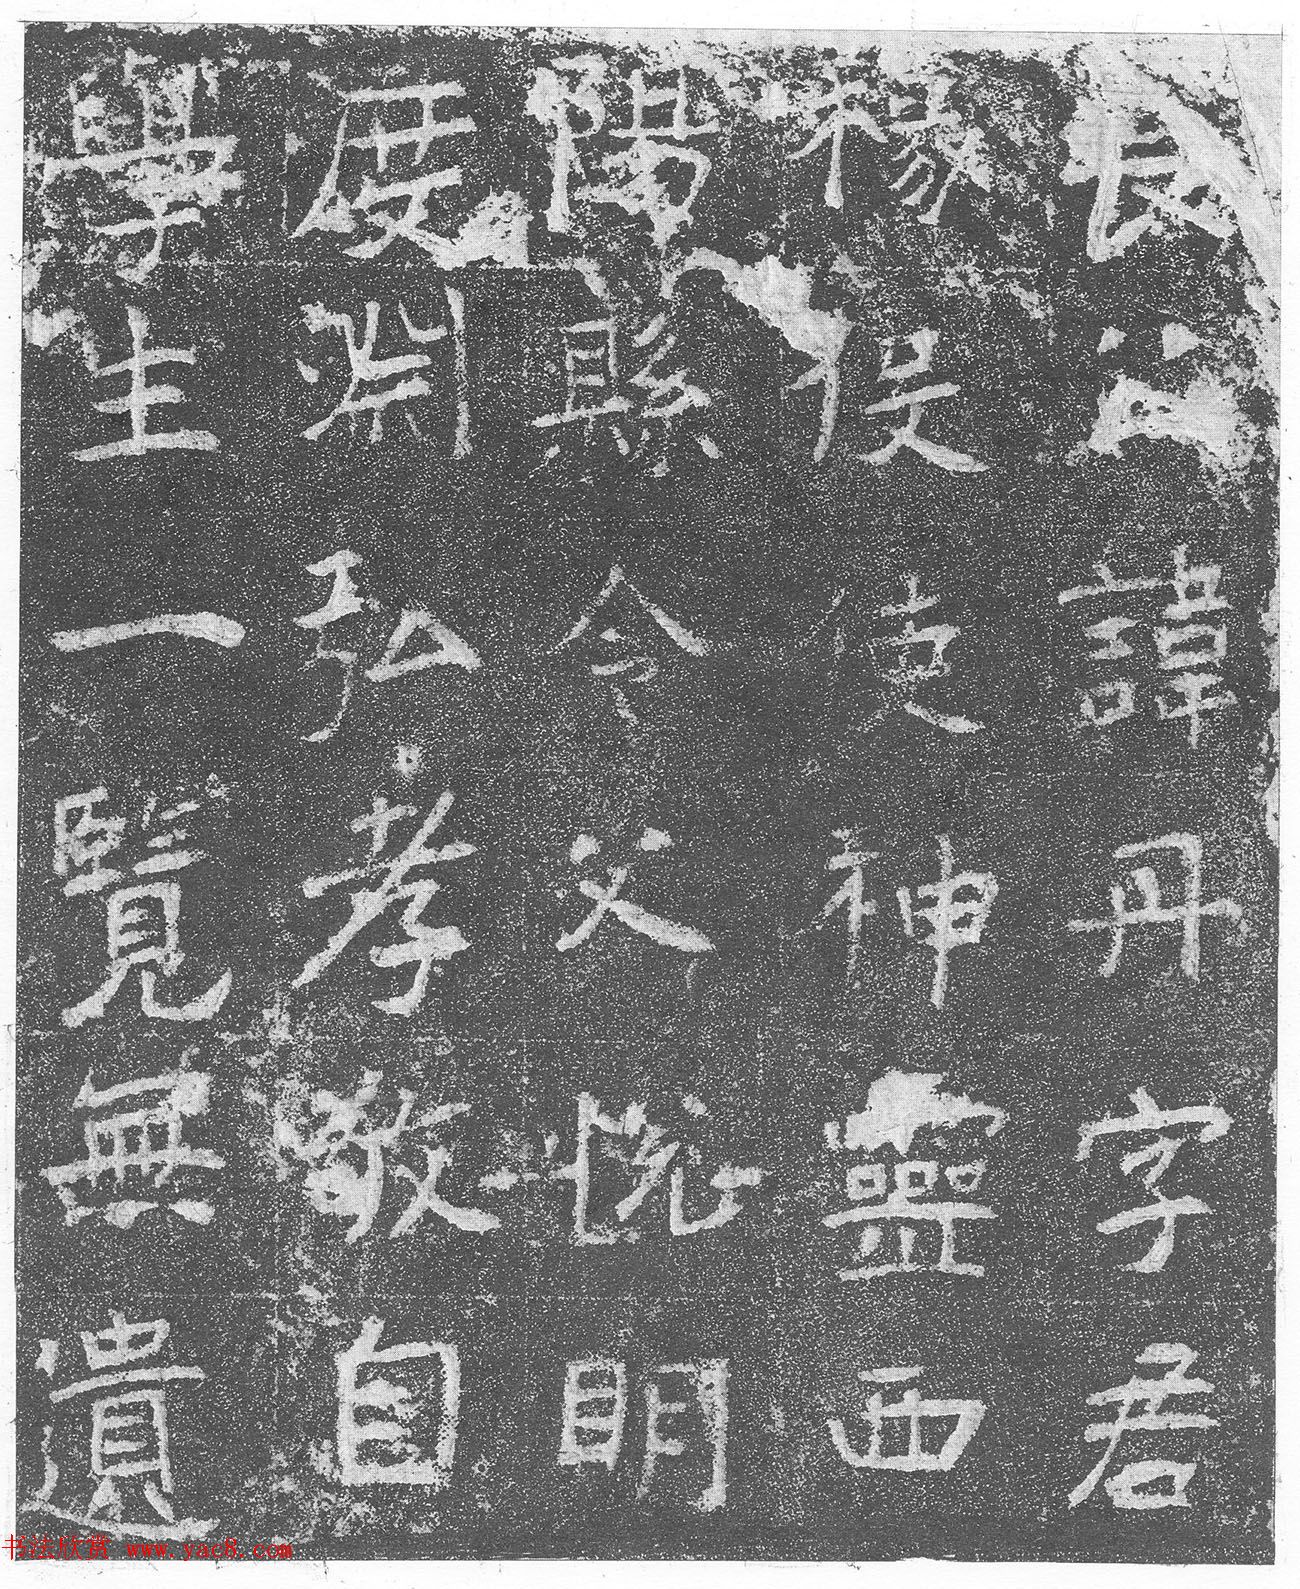 良公諱丹字君
穆使神靈西
陽縣令父悅明
度淵弘孝敬自
學生一覽無遺
书法欣赏 www.yac8.com